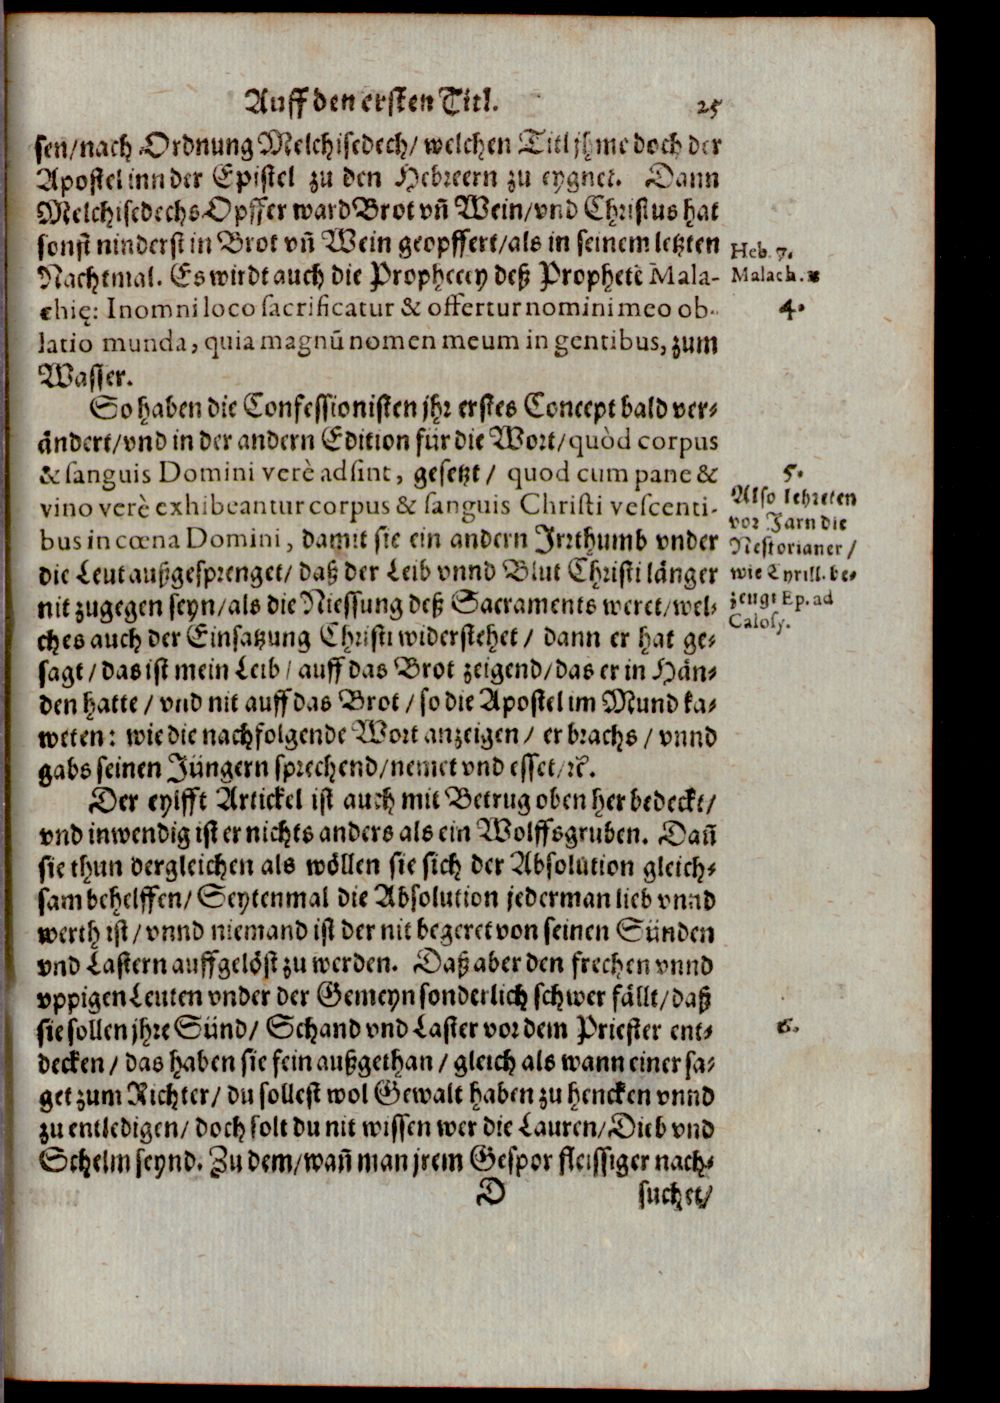 Auff den ersten Titl. 25
sen/nach Ordnung Melchisedech/ welchen Titl jhme doch der
Apostel inn der Epistel zu den Hebreern zu eygnet. Dann
Melchisedechs Opffer ward Brot vñ Wein/vnd Christus hat
sonst ninderst in Brot vñ Wein geopffert/als in seinem letzten
Nachtmal. Es wirdt auch die Prophecey deß Prophetẽ Mala-
chię: In omni loco sacrificatur & offertur nomini meo ob-
latio munda, quia magnũ nomen meum in gentibus, zum
Wasser.
Heb. 7.
Malach. 1
4.
So haben die Confessionisten jhr erstes Concept bald ver-
ändert/vnd in der andern Edition für die Wort/quòd corpus
& sanguis Domini verè adsint, gesetzt/ quod cum pane &
vino verè exhibeantur corpus & sanguis Christi vescenti-
bus in cœna Domini, damit sie ein andern Jrrthumb vnder
die Leut außgesprenget/ daß der Leib vnnd Blut Christi länger
nit zugegen seyn/als die Niessung deß Sacraments weret/wel-
ches auch der Einsatzung Christi widerstehet/ dann er hat ge-
sagt/das ist mein Leib/ auff das Brot zeigend/das er in Hän-
den hatte/ vnd nit auff das Brot/ so die Apostel im Mund ka-
weten: wie die nachfolgende Wort anzeigen/ er brachs/ vnnd
gabs seinen Jüngern sprechend/nemet vnd esset/ꝛc.
5.
Also lehreten
vor Jarn die
Nestorianer/
wie Cyrill. be-
zeugt Ep. ad
Calosy.
Der eylfft Artickel ist auch mit Betrug oben her bedeckt/
vnd inwendig ist er nichts anders als ein Wolffsgruben. Dañ
sie thun dergleichen als wöllen sie sich der Absolution gleich-
sam behelffen/ Seytenmal die Absolution jederman lieb vnnd
werth ist/ vnnd niemand ist der nit begeret von seinen Sünden
vnd Lastern auffgelöst zu werden. Daß aber den frechen vnnd
vppigen Leuten vnder der Gemeyn sonderlich schwer fällt/daß
sie sollen jhre Sünd/ Schand vnd Laster vor dem Priester ent-
decken/ das haben sie fein außgethan/ gleich als wann einer sa-
get zum Richter/ du sollest wol Gewalt haben zu hencken vnnd
zu entledigen/ doch solt du nit wissen wer die Lauren/Dieb vnd
Schelm seynd. Zu dem/wañ man jrem Gespor fleissiger nach-
6.
D suchet/